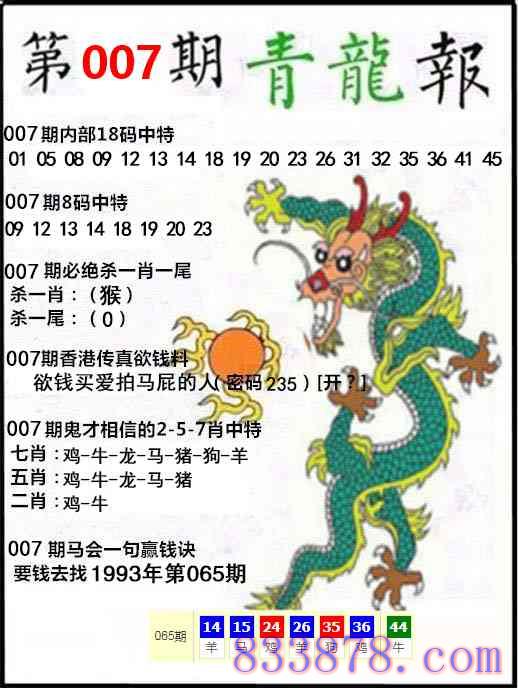 第007期青龍報
007期内部18码中特
01 05 08 09 12 13 14 18 19 20 23 26 31 32 35 36 41 45
007期8码中特
09 12 13 14 18 19 20 23
007期必绝杀一肖一尾
杀一肖：（猴）
杀一尾：（0）
007期香港传真欲钱料
欲钱买爱拍马屁的人（密码235）[开？]
007期鬼才相信的2-5-7肖中特
七肖：鸡-牛-龙-马-猪-狗-羊
五肖：鸡-牛-龙-马-猪
二肖：鸡-牛
007期马会一句赢钱诀
要钱去找1993年第065期
065期 14 15 24 26 35 36 44
羊 马 鸡 羊 狗 鸡 牛
833878.com